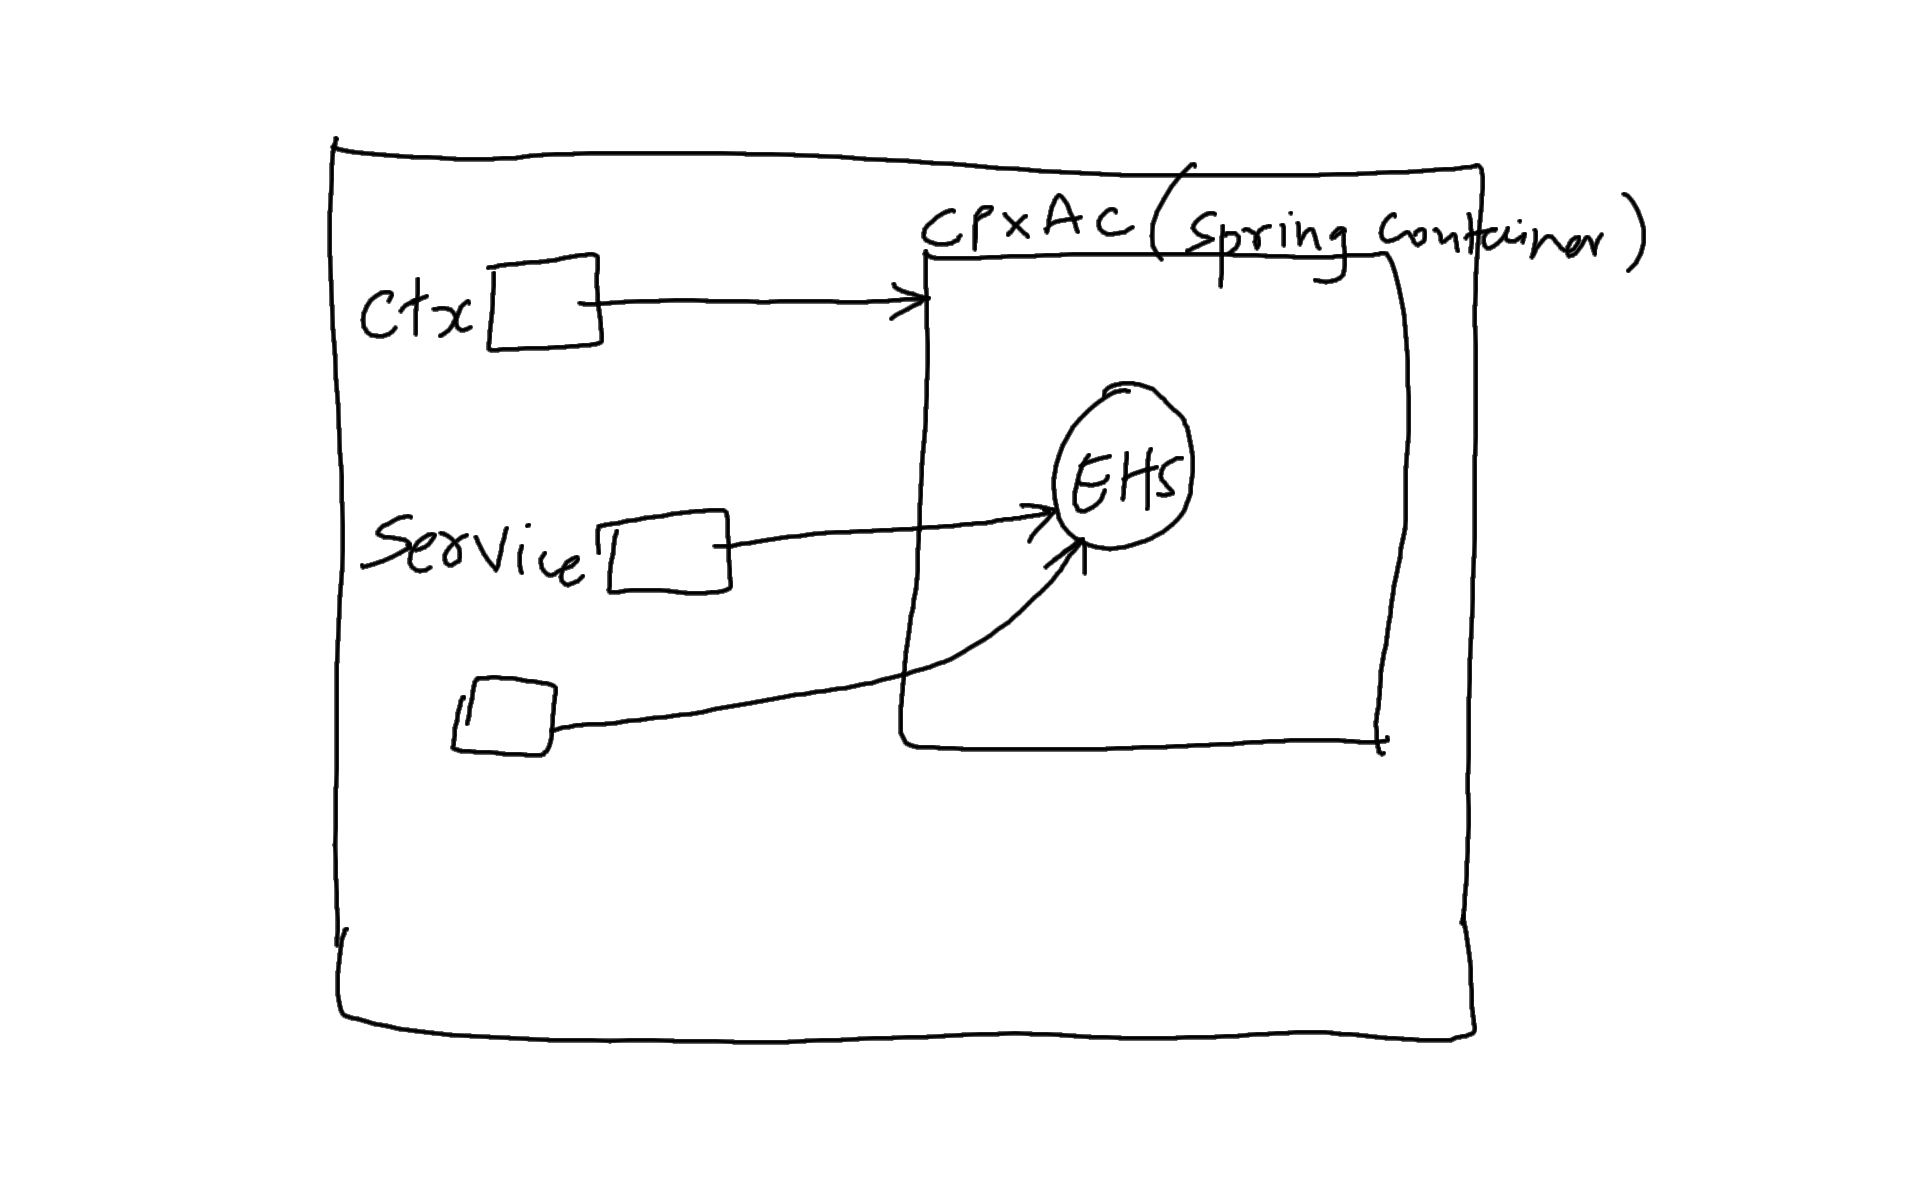 CPXAC (Spring Container)
Ctx
EHS
Service